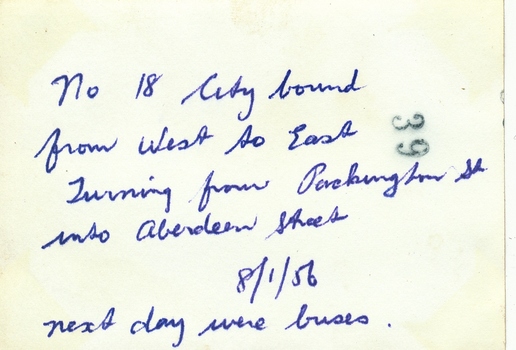 No 18 City bound
from West to East
39
Turning from Packington St
into Aberdeen Street
8/1/56
next day were buses.